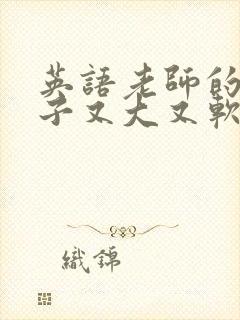 英語老師的
子又大又軟
織錦